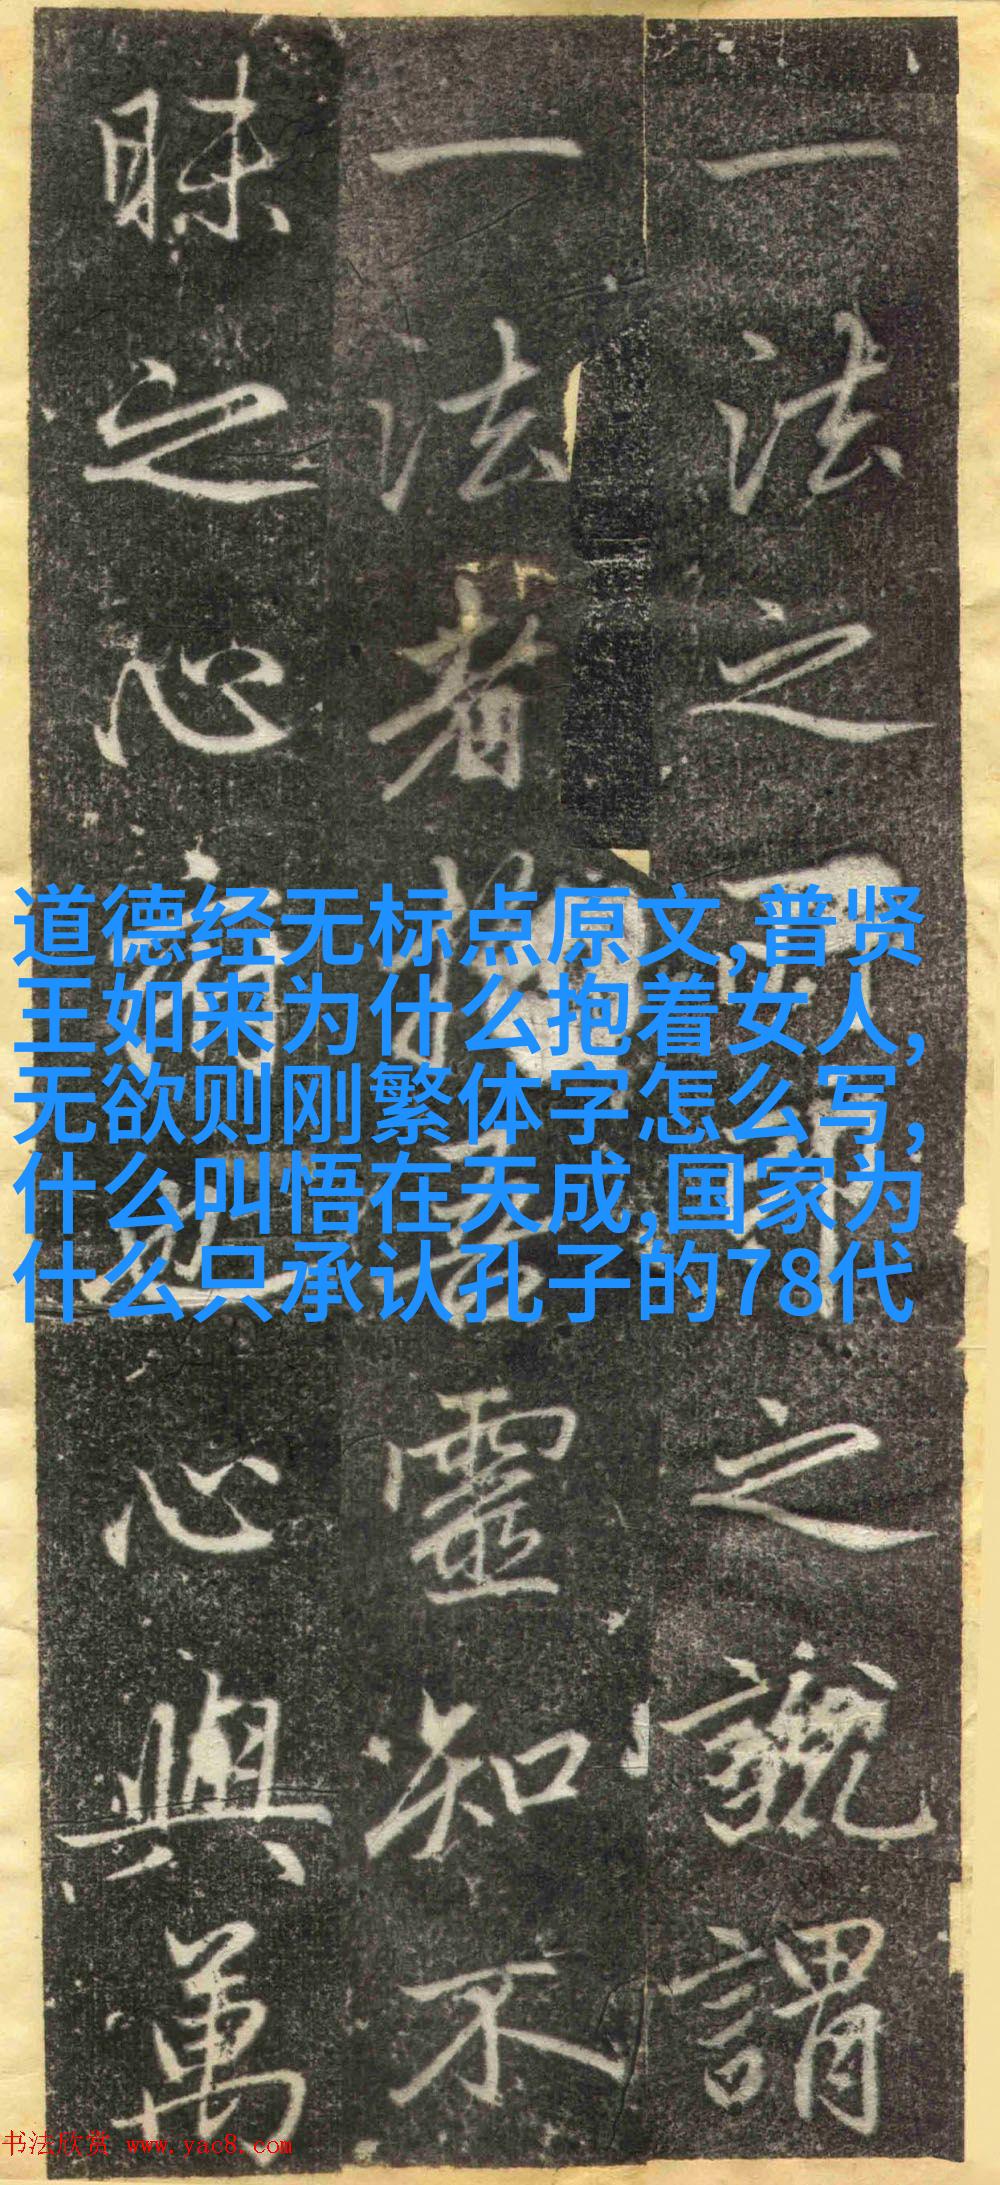 一法之可之謂
一法者靈知不
昧之心心與萬
道德经无标点原文,普贤
王如来为什么抱着女人,
无欲则刚繁体字怎么写,
什么叫悟在天成,国家为
什么只承认孔子的78代
书法欣赏 www.yac8.com